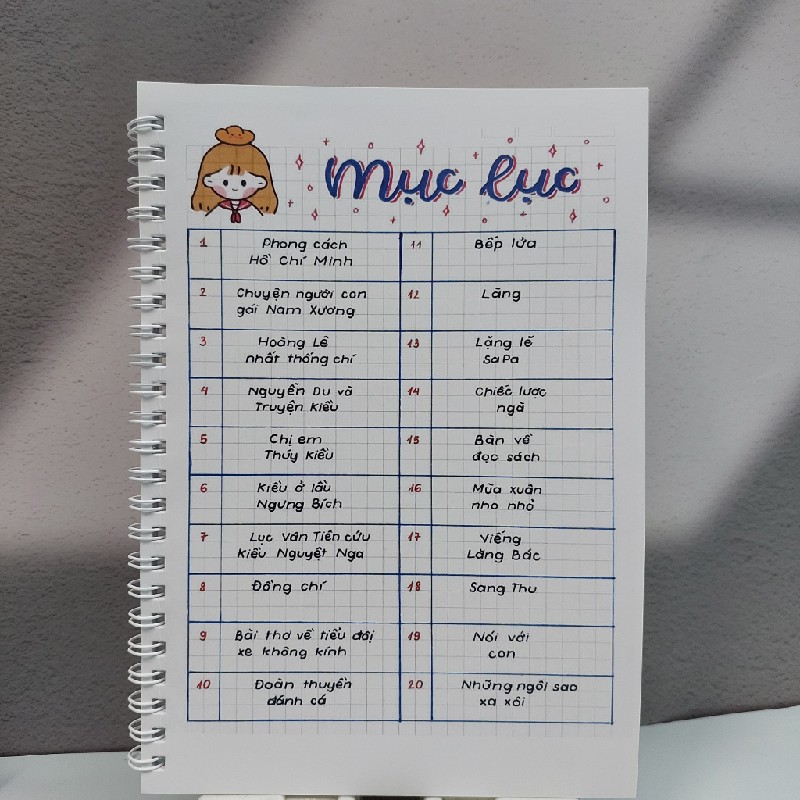 Mục lục
1 Phong cách
Hồ Chí Minh
2 Chuyện người con
gái Nam Xương
3 Hoàng Lê
nhất thống chí
4 Nguyễn Du và
Truyện Kiều
5 Chị em
Thúy Kiều
6 Kiều ở lầu
Ngưng Bích
7 Lục Vân Tiên cứu
Kiều Nguyệt Nga
8 Đồng chí
9 Bài thơ về tiểu đội
xe không kính
10 Đoàn thuyền
đánh cá
11 Bếp lửa
12 Làng
13 Lặng lẽ
SaPa
14 Chiếc lược
ngà
15 Bàn về
đọc sách
16 Mùa xuân
nho nhỏ
17 Viếng
Lăng Bác
18 Sang Thu
19 Nói với
con
20 Những ngôi sao
xa xôi